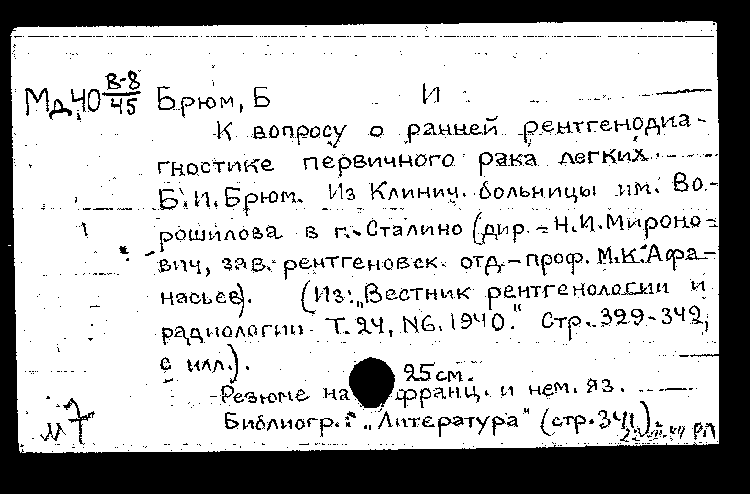 Мд40 В-8/45 Брюм, Б И
К вопросу о ранней рентгенодиа-
гностике первичного рака легких.
Б.И.Брюм. Из Клинич. больницы им. Во-
рошилова в г. Сталино (дир.- Н.И.Мироно-
вич, зав. рентгеновск. отд.-проф. М.К.Афа-
насьев). (Из: „Вестник рентгенологии и
радиологии. Т. 24, N6. 1940." Стр. 329-342,
с илл.).
25см.
Резюме на франц. и нем. яз.
Библиогр.: „Литература" (стр.341).
м7
РП